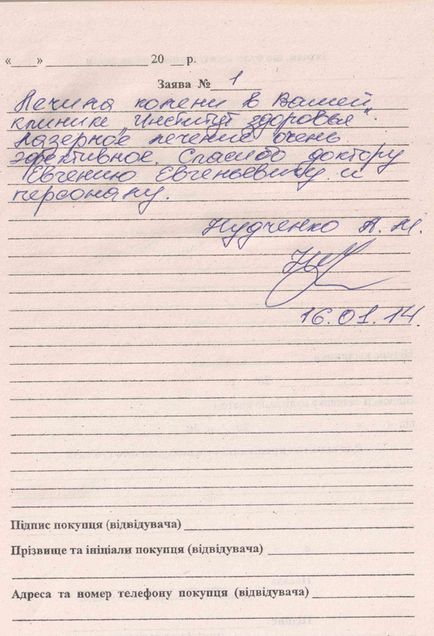 «____» ____________ 20 __ р.
Заява № 1
Лечила колени в Вашей
клинике „Институт здоровья".
Лазерное лечение очень
эффективное. Спасибо доктору
Евгению Евгеньевичу и
персоналу.
Нудченко А. М.
16.01.14.
Підпис покупця (відвідувача)
Прізвище та ініціали покупця (відвідувача)
Адреса та номер телефону покупця (відвідувача)